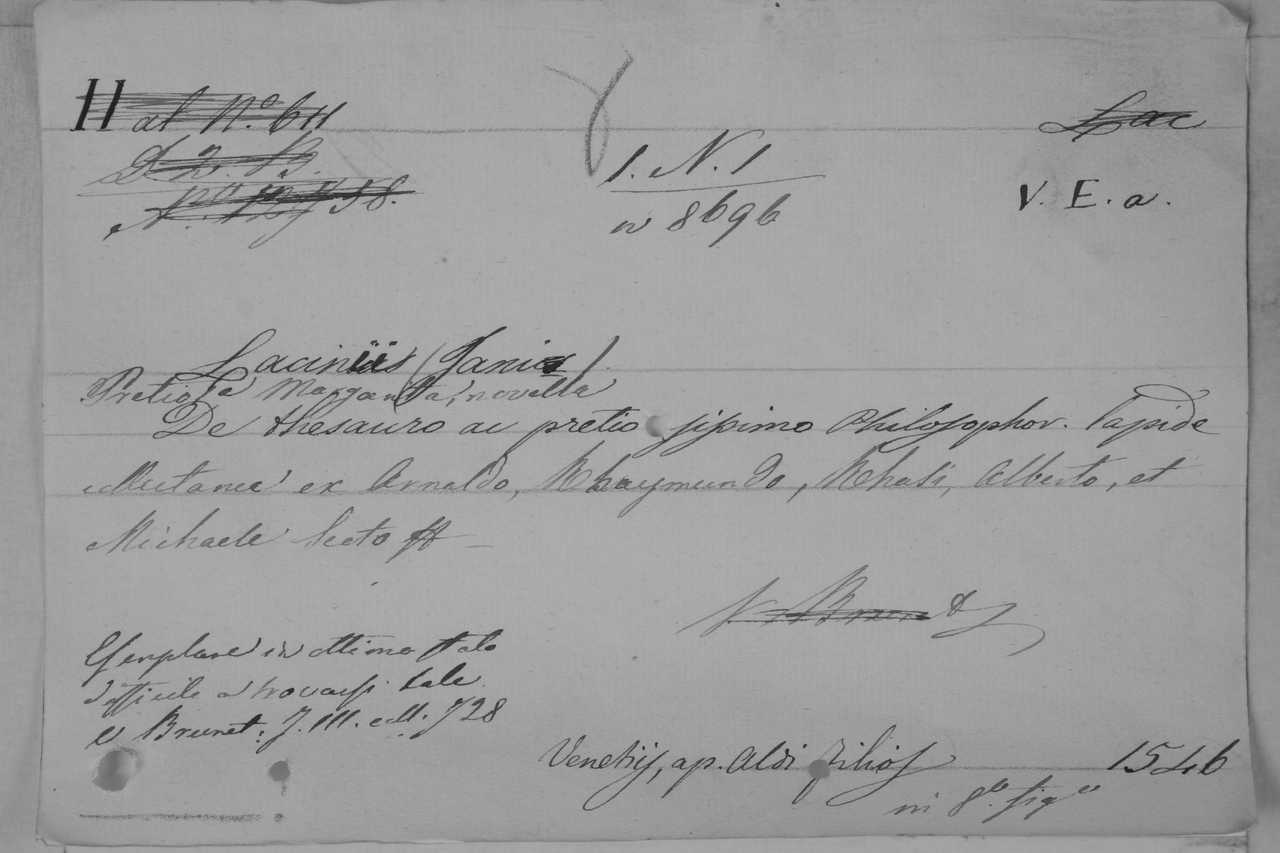 H al N.º 611
L. 2. B.
Lac
1. N. 1
n 8696
V. E. a.
Laciniis (Janis)
Pretiosa Margarita, novella
De thesauro ac pretiosissimo Philosophor. lapide
Mutanei ex Arnaldo, Rhaymundo, Rhasi, Alberto, et
Michaele Scoto ff —
V. Brunet
Esemplare in ottimo stato
difficile a trovarsi tale
v Brunet: T. III. coll. 728
Venetijs, ap. Aldi filios 1546
in 8º. figᵉ